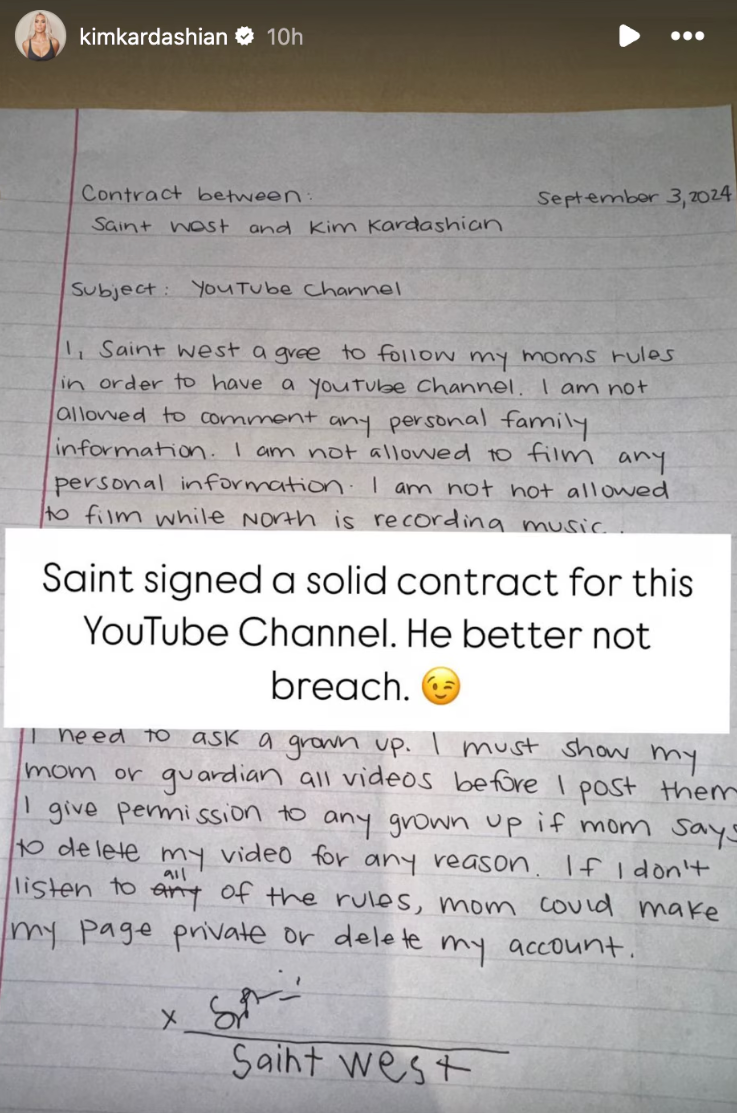 kimkardashian 10h
Contract between: September 3, 2024
Saint West and Kim Kardashian
Subject: YouTube Channel
I, Saint West agree to follow my moms rules
in order to have a YouTube Channel. I am not
allowed to comment any personal family
information. I am not allowed to film any
personal information. I am not not allowed
to film while North is recording music.
Saint signed a solid contract for this
YouTube Channel. He better not
breach. 😉
I need to ask a grown up. I must show my
mom or guardian all videos before I post them
I give permission to any grown up if mom says
to delete my video for any reason. If I don't
all
listen to any of the rules, mom could make
my page private or delete my account.
x
Saint West